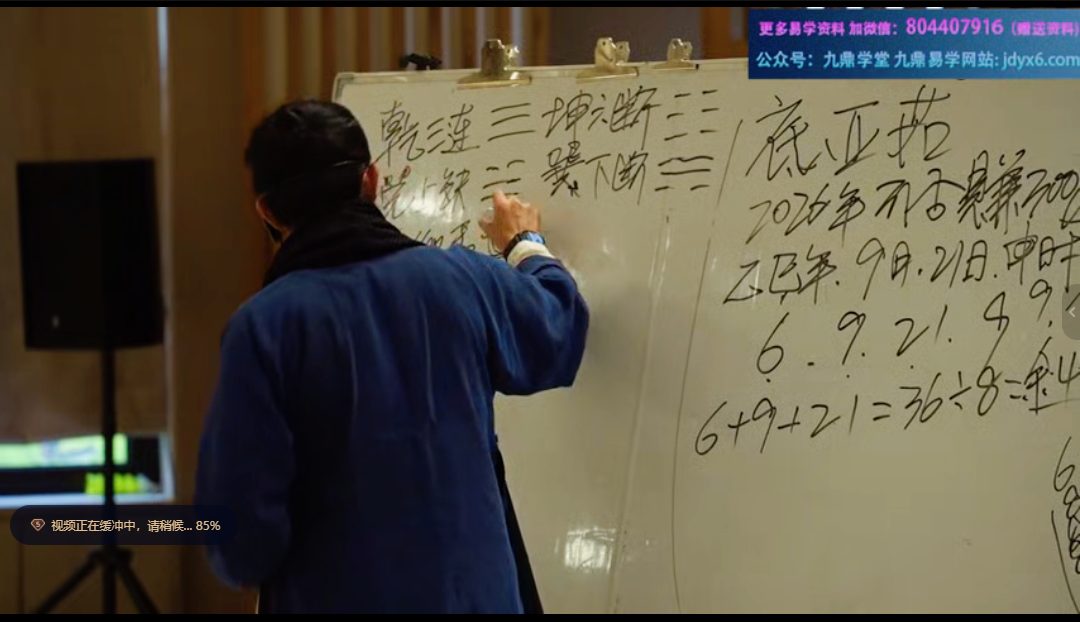 更多易学资料 加微信：804407916（赠送资料）
公众号：九鼎学堂 九鼎易学网站: jdyx6.com
乾三连 ☰ 坤六断 ☷
兑上缺 ☱ 巽下断 ☴
2026年 300
乙巳年.9月.21日.申时
6.9.21.9
6+9+21=36÷8=余4
视频正在缓冲中，请稍候... 85%